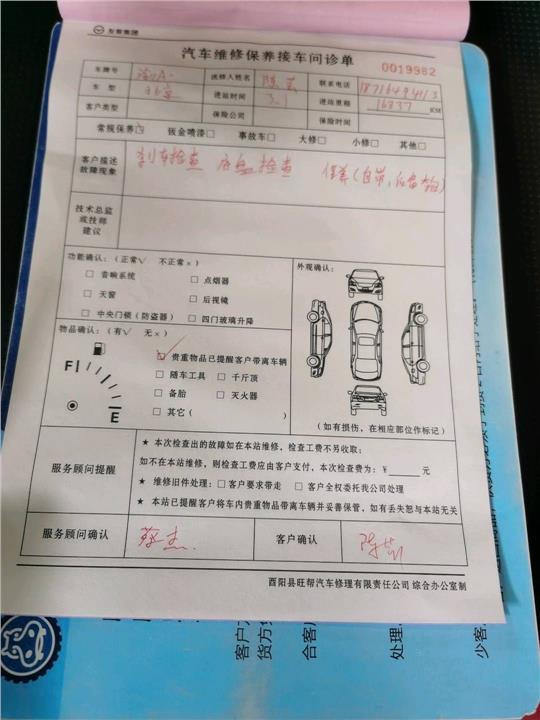 友帮集团
汽车维修保养接车问诊单
0019982
车牌号 送修人姓名 陈 联系电话 18716494113
车型 进站时间 3.1 进站里程 16837 KM
客户类型 保险公司 保险时间
常规保养☑ 钣金喷漆□ 事故车□ 大修□ 小修□ 其他□
客户描述 故障现象 刹车检查 底盘检查 保养(自带,
技术总监或技师建议
功能确认:(正常√ 不正常×) 外观确认:
□ 音响系统 □ 点烟器
□ 天窗 □ 后视镜
□ 中央门锁(防盗器) □ 四门玻璃升降
物品确认:(有√ 无×)
☑ 贵重物品已提醒客户带离车辆
□ 随车工具 □ 千斤顶
□ 备胎 □ 灭火器
□ 其它( )
F
E
(如有损伤,在相应部位作标记)
服务顾问提醒
★ 本次检查出的故障如在本站维修,检查工费不另收取;
如不在本站维修,则检查工费应由客户支付,本次检查费为:¥ 元
★ 维修旧件处理:□ 客户要求带走 □ 客户全权委托我公司处理
★ 本站已提醒客户将车内贵重物品带离车辆并妥善保管,如有丢失恕与本站无关
服务顾问确认 蔡杰 客户确认 陈
酉阳县旺帮汽车修理有限责任公司 综合办公室制
客户
货方
合
客
处理
少客